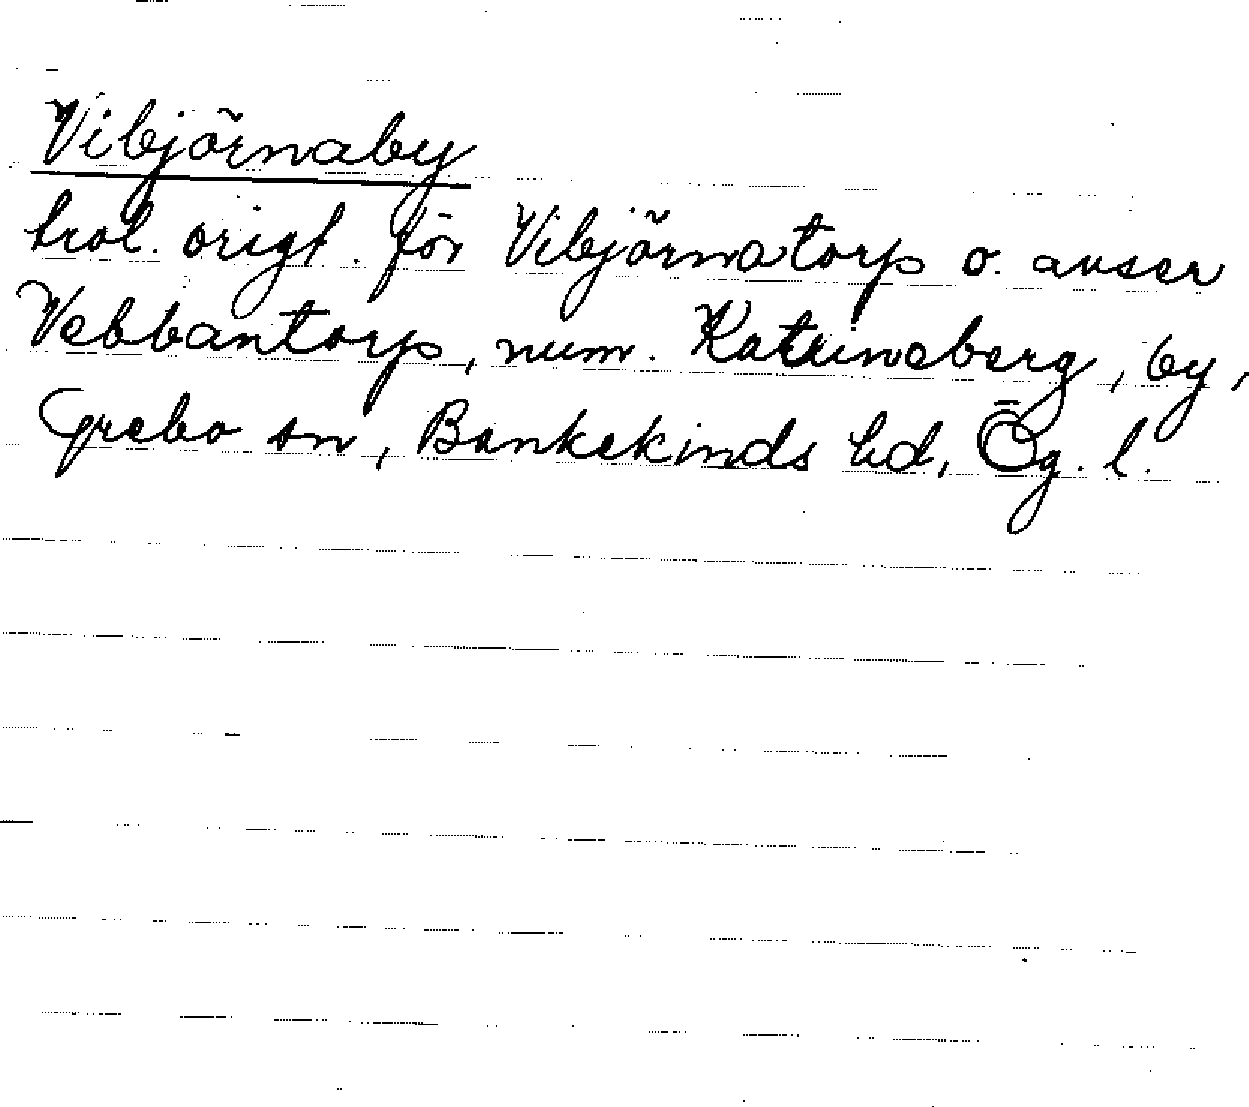 Vibjörnaby
trol. origt. för Vibjörnatorp o. avser
Vebbantorp, num. Katrineberg, by,
Grebo sn, Bankekinds hd, Ög. l.